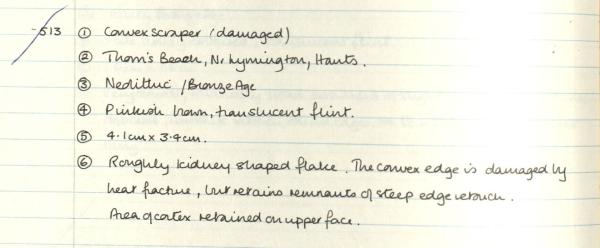 -513 ① Convex scraper (damaged)
② Thorn's Beach, Nr Lymington, Hants.
③ Neolithic / Bronze Age
④ Pinkish brown, translucent flint.
⑤ 4.1cm x 3.4cm.
⑥ Roughly kidney shaped flake. The convex edge is damaged by
heat facture, but retains remnants of steep edge retouch.
Area of cortex retained on upper face.